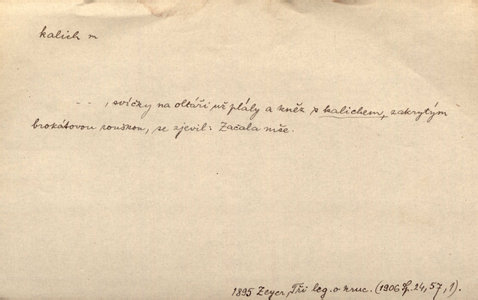 kalich m
- - , svíčky na oltáři už plály a kněz s kalichem, zakrytým
brokátovou rouškou, se zjevil: Začala mše.
1895 Zeyer, Tři leg. o kruc. (1906 24, 57, 1).